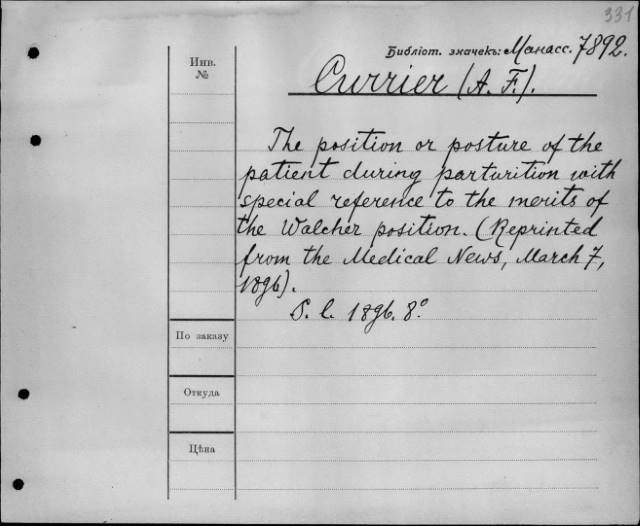 331
Библіот. значекъ: Манасс. 7892.
Инв.
№
Currier (A. F.).
The position or posture of the
patient during parturition with
special reference to the merits of
the Walcher position. (Reprinted
from the Medical News, March 7,
1896).
S. l. 1896. 8°
По заказу
Откуда
Цѣна